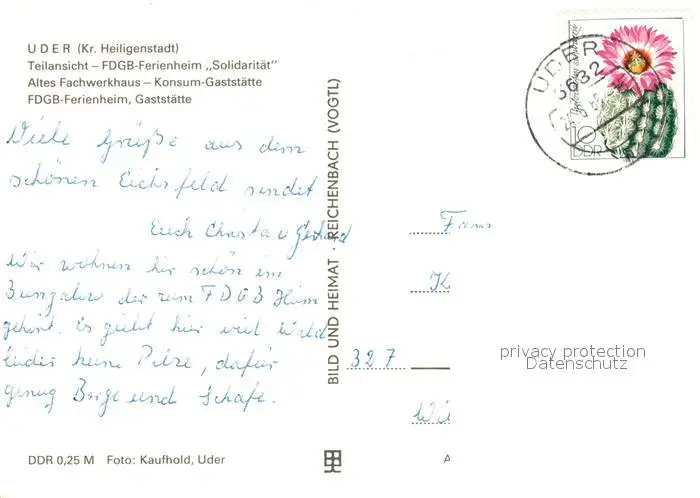 UDER (Kr. Heiligenstadt)
Teilansicht – FDGB-Ferienheim „Solidarität“
Altes Fachwerkhaus – Konsum-Gaststätte
FDGB-Ferienheim, Gaststätte
Viele Grüße aus dem
schönen Eichsfeld sendet
Euch Christa u Gerhard
Wir wohnen hir schön im
Bungalow der zum FDGB Heim
gehört. Es giebt hier viel Wald
leider keine Pilze, dafür
genug Berge und Schafe.
DDR 0,25 M Foto: Kaufhold, Uder
BILD UND HEIMAT · REICHENBACH (VOGTL)
UDER
5632
10
DDR
Fam
327
privacy protection
Datenschutz
A